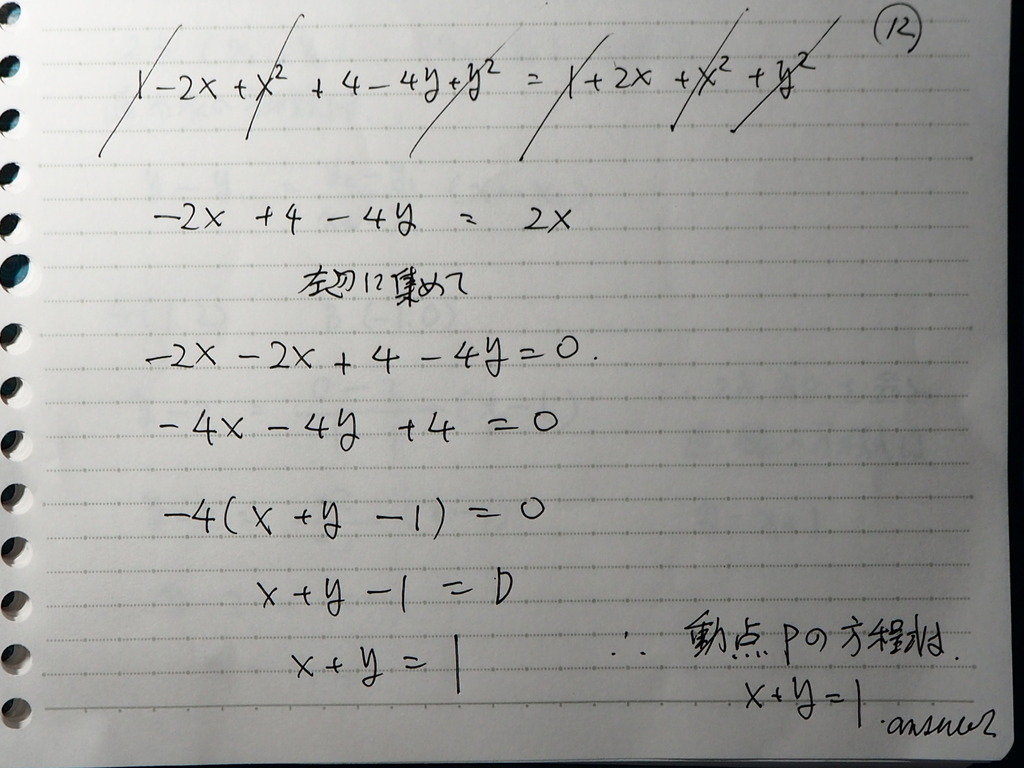 (12)
1 - 2x + x² + 4 - 4y + y² = 1 + 2x + x² + y²
-2x + 4 - 4y = 2x
左辺に集めて
-2x - 2x + 4 - 4y = 0.
-4x - 4y + 4 = 0
-4(x + y - 1) = 0
x + y - 1 = 0
x + y = 1
∴ 動点Pの方程式は.
x + y = 1
answer